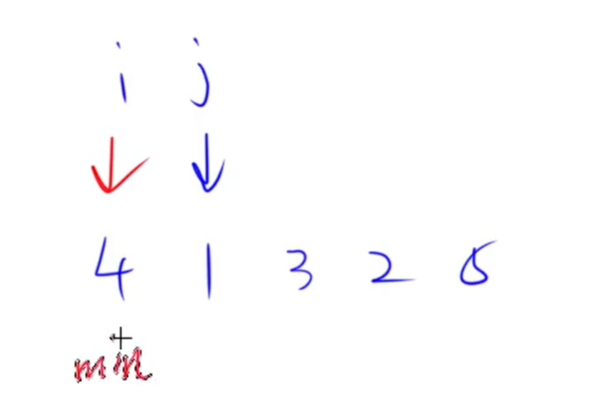 i j
4 1 3 2 5
min